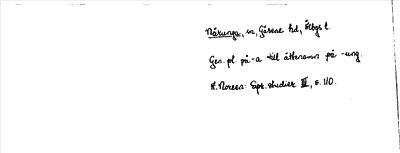 Närunga, sn, Gäsene hd, Älvsgs l.
Gen. pl. på -a till ättenamn på -ung.
A. Noreen: Spr. studier III, s. 110.